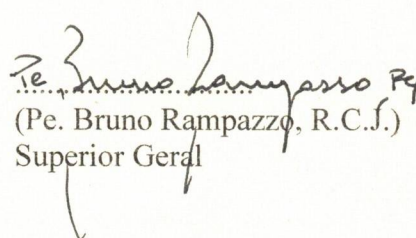 Pe Bruno Rampazzo
(Pe. Bruno Rampazzo, R.C.J.)
Superior Geral